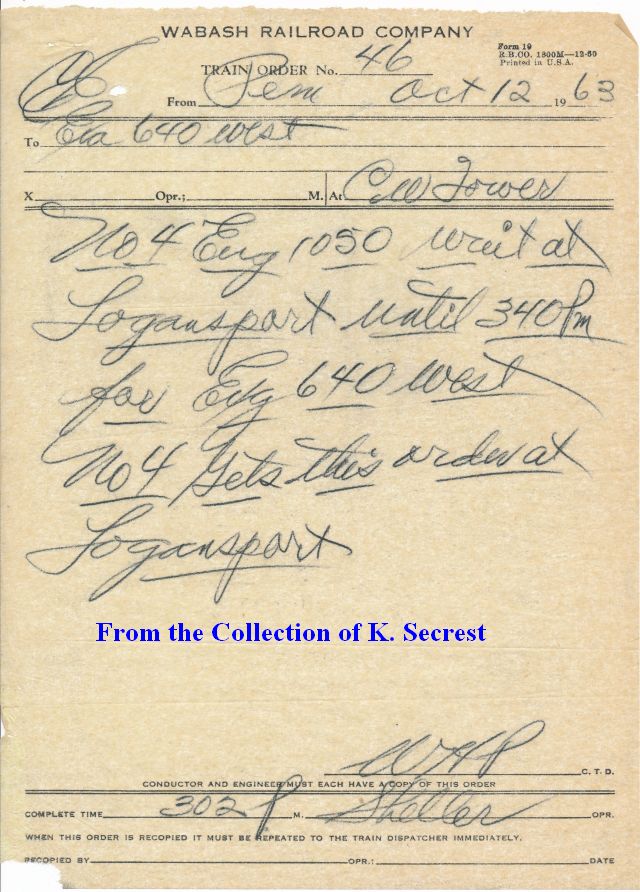 WABASH RAILROAD COMPANY
Form 19
R.B.CO. 1300M—12-50
Printed in U.S.A.
TRAIN ORDER No. 46
From Peru Oct 12 1963
To Eng 640 West
X Opr.; M. At CW Tower
No 4 Eng 1050 wait at
Logansport until 340 Pm
for Eng 640 West
No 4 Gets this order at
Logansport
From the Collection of K. Secrest
WHP C. T. D.
CONDUCTOR AND ENGINEER MUST EACH HAVE A COPY OF THIS ORDER
COMPLETE TIME 302 P M. Sheller OPR.
WHEN THIS ORDER IS RECOPIED IT MUST BE REPEATED TO THE TRAIN DISPATCHER IMMEDIATELY.
RECOPIED BY OPR.: DATE